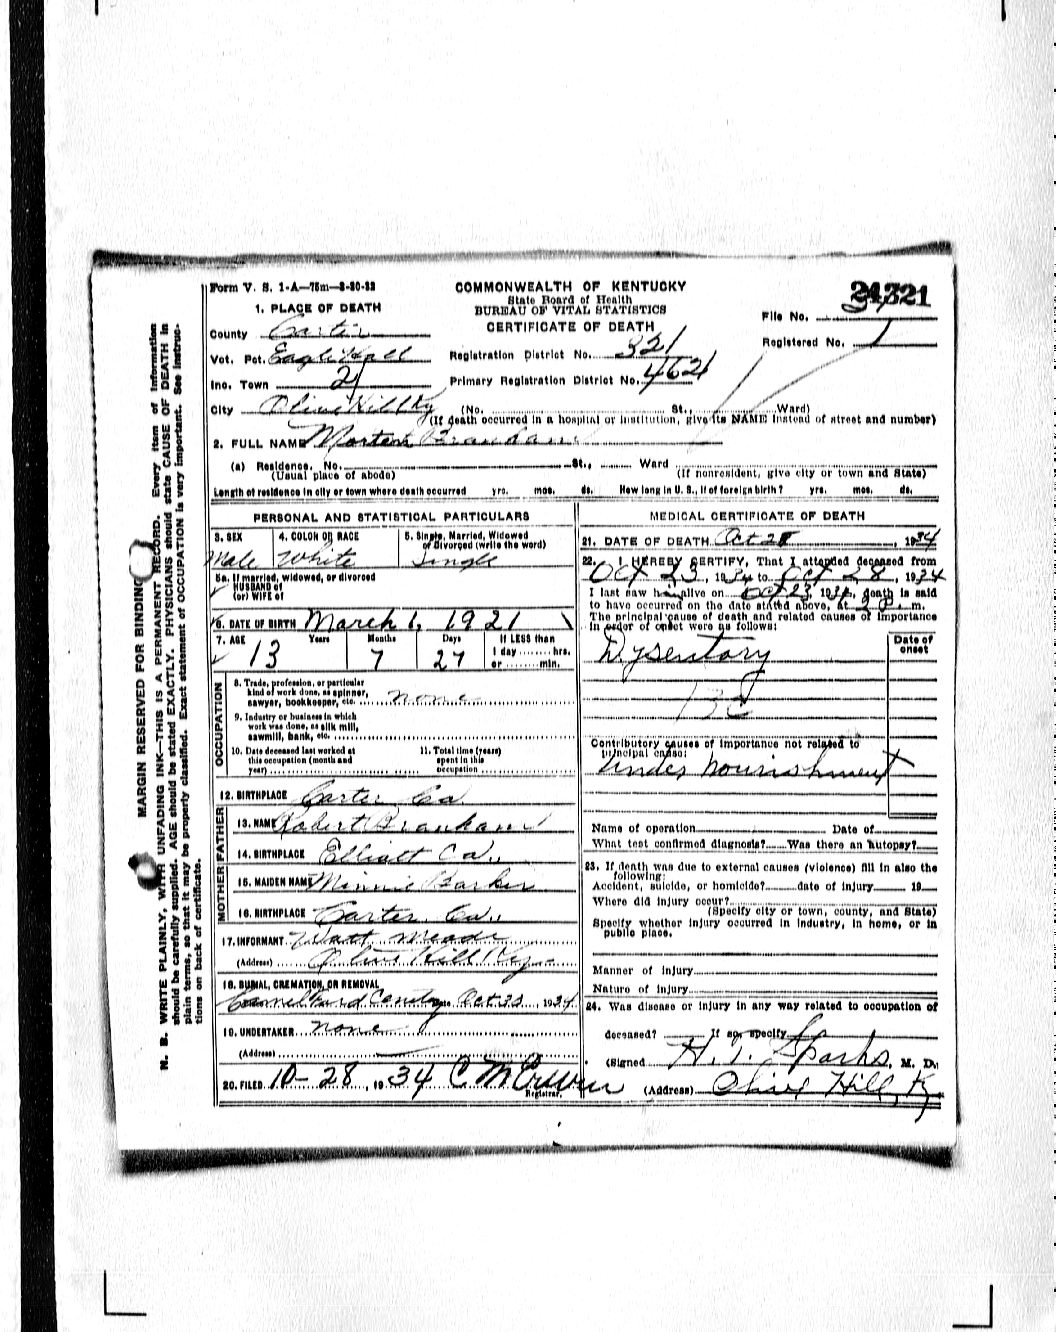 Form V. S. 1-A—75m—8-30-32
COMMONWEALTH OF KENTUCKY
State Board of Health
BUREAU OF VITAL STATISTICS
CERTIFICATE OF DEATH
File No. 321
1. PLACE OF DEATH
County Carter
Registered No. 1
Vot. Pct. Eagle Hall
Registration District No. 321
Inc. Town 21
Primary Registration District No. 4621
City Olive Hill Ky (No. St., Ward)
(If death occurred in a hospital or institution, give its NAME instead of street and number)
2. FULL NAME Branham
(a) Residence. No. St., Ward
(Usual place of abode) (If nonresident, give city or town and State)
Length of residence in city or town where death occurred yrs. mos. ds. How long in U. S., if of foreign birth? yrs. mos. ds.
PERSONAL AND STATISTICAL PARTICULARS
3. SEX 4. COLOR OR RACE 5. Single, Married, Widowed
or Divorced (write the word)
Male White Single
5a. If married, widowed, or divorced
HUSBAND of
(or) WIFE of
6. DATE OF BIRTH March 1, 1921
7. AGE Years Months Days If LESS than
1 day hrs.
or min.
13 7 27
OCCUPATION
8. Trade, profession, or particular
kind of work done, as spinner,
sawyer, bookkeeper, etc. none
9. Industry or business in which
work was done, as silk mill,
sawmill, bank, etc.
10. Date deceased last worked at
this occupation (month and
year)
11. Total time (years)
spent in this
occupation
12. BIRTHPLACE Carter Co.
FATHER
13. NAME Robert Branham
14. BIRTHPLACE Elliott Co.,
MOTHER
15. MAIDEN NAME Minnie Barker
16. BIRTHPLACE Carter Co.,
17. INFORMANT Watt Meade
(Address) Olive Hill Ky
18. BURIAL, CREMATION, OR REMOVAL
Date Oct 1934
19. UNDERTAKER none
(Address)
20. FILED 10-28, 1934 C M Erwin
Registrar.
MEDICAL CERTIFICATE OF DEATH
21. DATE OF DEATH Oct 28, 1934
22. I HEREBY CERTIFY, That I attended deceased from
Oct 23, 1934 to Oct 28, 1934
I last saw h alive on Oct 23, 1934, death is said
to have occurred on the date stated above, at 2 P. m.
The principal cause of death and related causes of importance
in order of onset were as follows:
Date of
onset
Dysentory
13c
Contributory causes of importance not related to
principal cause:
Under nourishment
Name of operation Date of
What test confirmed diagnosis? Was there an autopsy?
23. If death was due to external causes (violence) fill in also the
following:
Accident, suicide, or homicide? date of injury 19
Where did injury occur?
(Specify city or town, county, and State)
Specify whether injury occurred in industry, in home, or in
public place.
Manner of injury
Nature of injury
24. Was disease or injury in any way related to occupation of
deceased? If so, specify
(Signed H. T. Sparks, M. D.
(Address) Olive Hill, Ky
MARGIN RESERVED FOR BINDING
N. B. WRITE PLAINLY, WITH UNFADING INK—THIS IS A PERMANENT RECORD. Every item of information
should be carefully supplied. AGE should be stated EXACTLY. PHYSICIANS should state CAUSE OF DEATH in
plain terms, so that it may be properly classified. Exact statement of OCCUPATION is very important. See instruc-
tions on back of certificate.